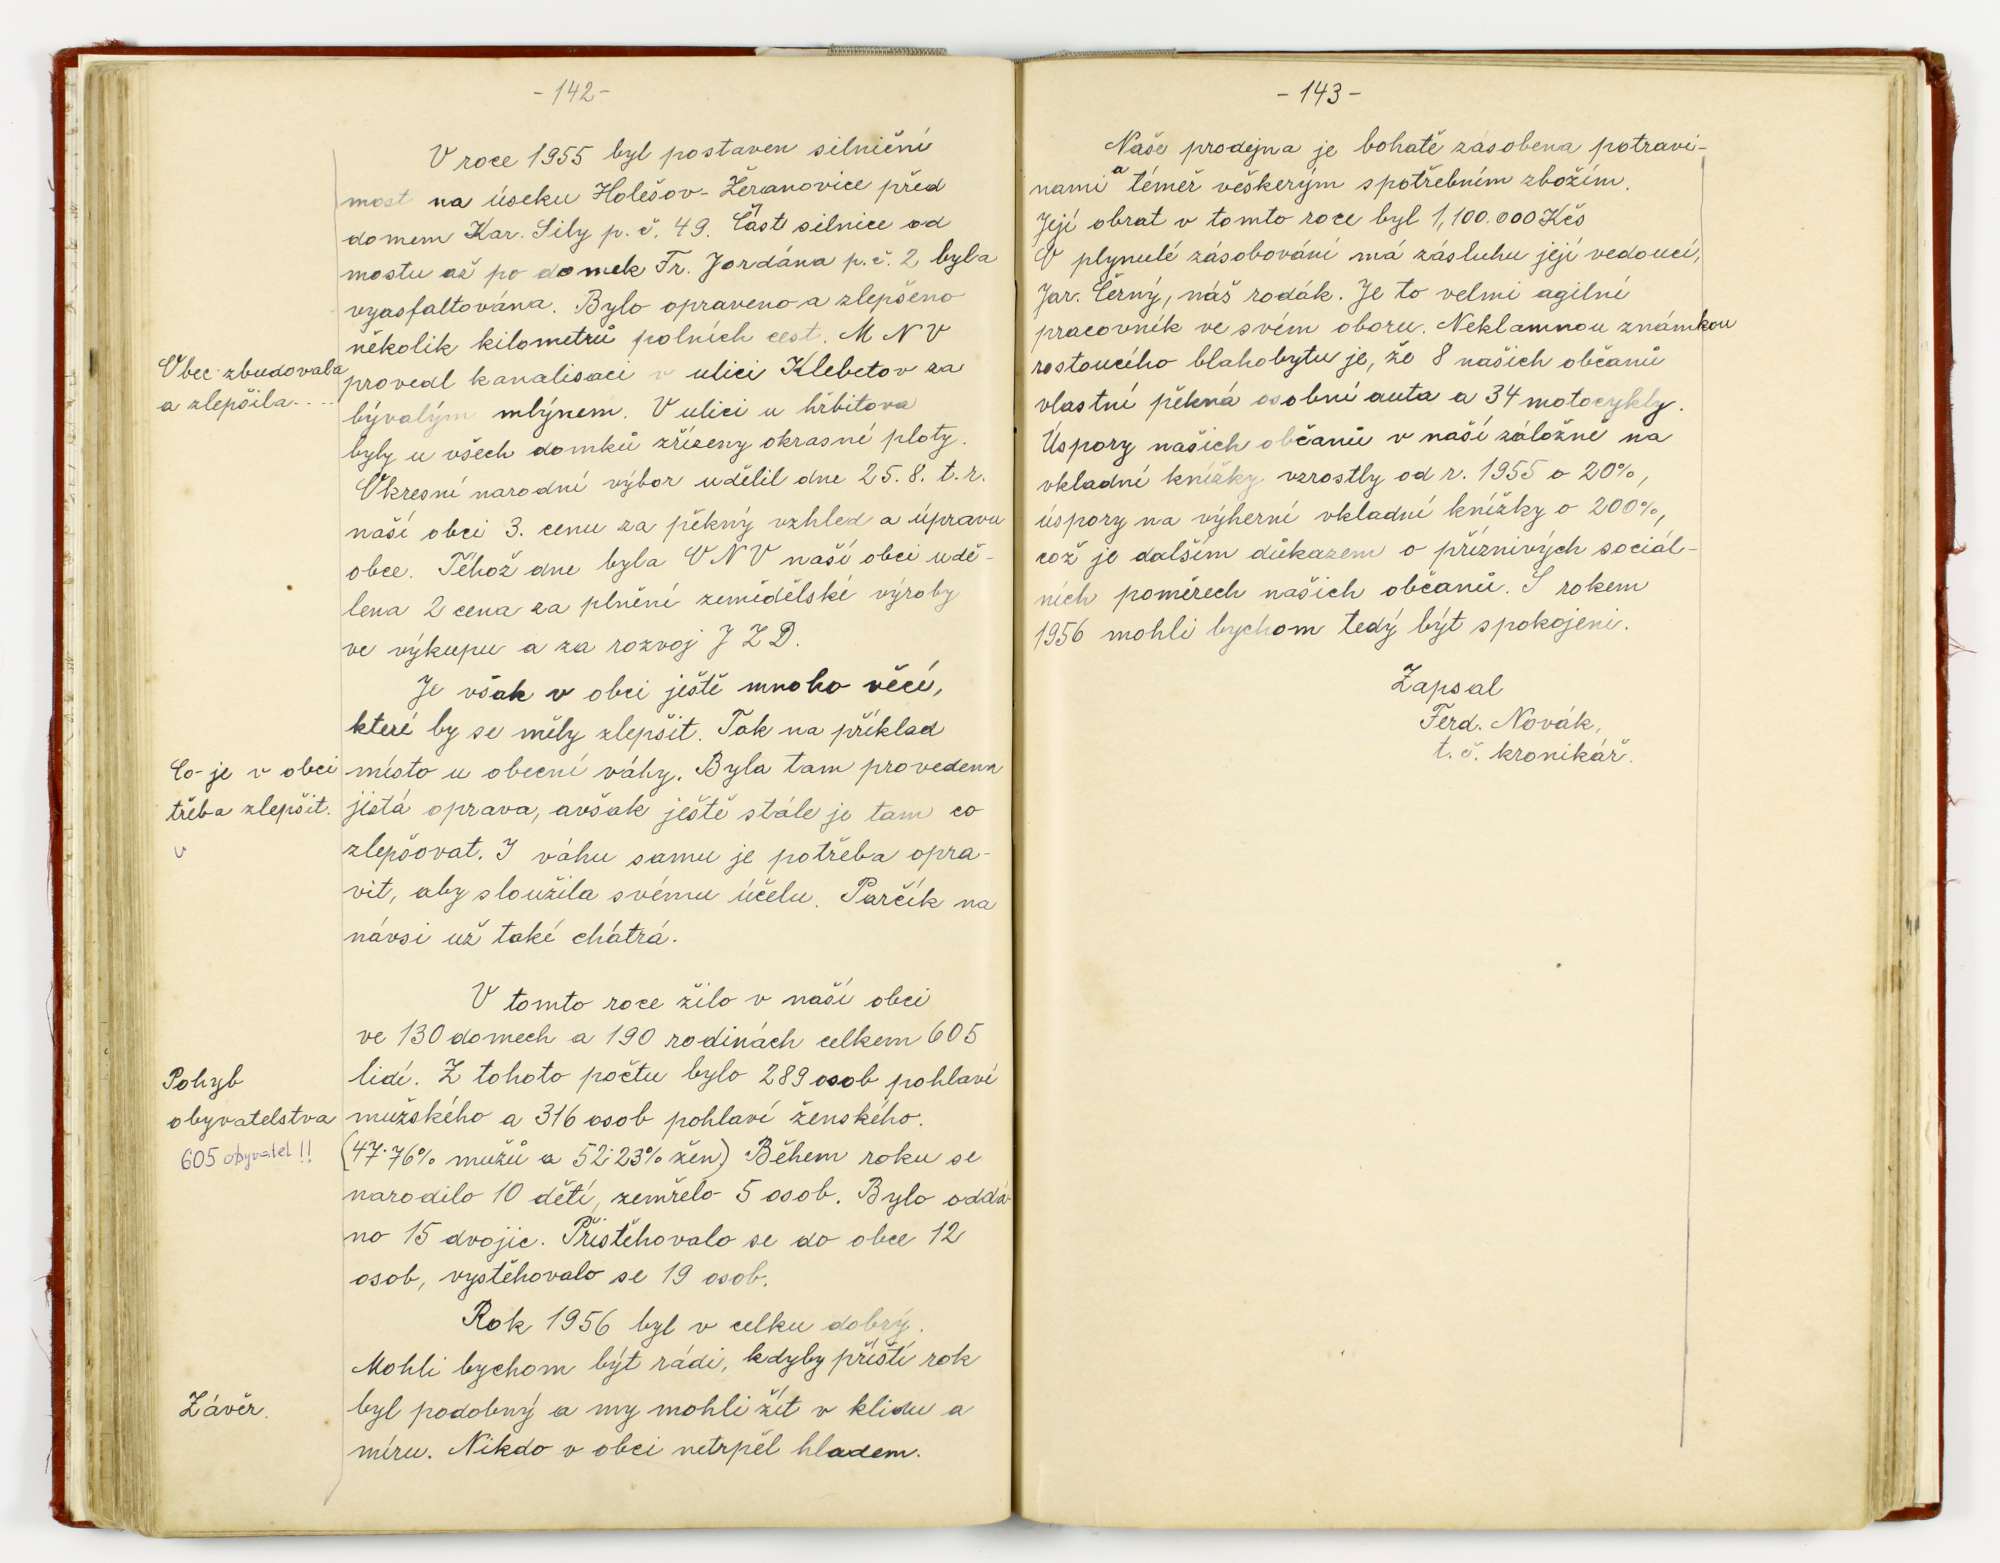 - 142 -
V roce 1955 byl postaven silniční
most na úseku Holešov - Žeranovice před
domem Kar. Sily p. č. 49. Část silnice od
mostu až po domek Fr. Jordána p. č. 2 byla
vyasfaltována. Bylo opraveno a zlepšeno
několik kilometrů polních cest. M N V
Obec zbudovala
a zlepšila....
provedl kanalisaci v ulici Klebetov za
bývalým mlýnem. V ulici u hřbitova
byly u všech domků zřízeny okrasné ploty.
Okresní narodní výbor udělil dne 25. 8. t. r.
naší obci 3. cenu za pěkný vzhled a úpravu
obce. Téhož dne byla O N V naší obci udě-
lena 2 cena za plnění zemědělské výroby
ve výkupu a za rozvoj J Z D.
Je však v obci ještě mnoho věcí,
které by se měly zlepšit. Tak na příklad
Co je v obci
třeba zlepšit.
místo u obecní váhy. Byla tam provedena
jistá oprava, avšak ještě stále je tam co
zlepšovat. I váhu samu je potřeba opra-
vit, aby sloužila svému účelu. Parčík na
návsi už také chátrá.
V tomto roce žilo v naší obci
ve 130 domech a 190 rodinách celkem 605
Pohyb
obyvatelstva
605 obyvatel !!
lidí. Z tohoto počtu bylo 289 osob pohlaví
mužského a 316 osob pohlaví ženského.
(47·76% mužů a 52·23% žen) Během roku se
narodilo 10 dětí, zemřelo 5 osob. Bylo oddá-
no 15 dvojic. Přistěhovalo se do obce 12
osob, vystěhovalo se 19 osob.
Rok 1956 byl v celku dobrý.
Mohli bychom být rádi, kdyby příští rok
Závěr.
byl podobný a my mohli žít v klidu a
míru. Nikdo v obci netrpěl hladem.
- 143 -
Naše prodejna je bohatě zásobena potravi-
nami a téměř veškerým spotřebním zbožím.
Její obrat v tomto roce byl 1,100.000 Kčs
O plynulé zásobování má zásluhu její vedoucí,
Jar. Černý, náš rodák. Je to velmi agilní
pracovník ve svém oboru. Neklamnou známkou
rostoucího blahobytu je, že 8 našich občanů
vlastní pěkná osobní auta a 34 motocykly.
Úspory našich občanů v naší záložně na
vkladní knížky vzrostly od r. 1955 o 20%,
úspory na výherní vkladní knížky o 200%,
což je dalším důkazem o příznivých sociál-
ních poměrech našich občanů. S rokem
1956 mohli bychom tedy být spokojeni.
Zapsal
Ferd. Novák,
t. č. kronikář.